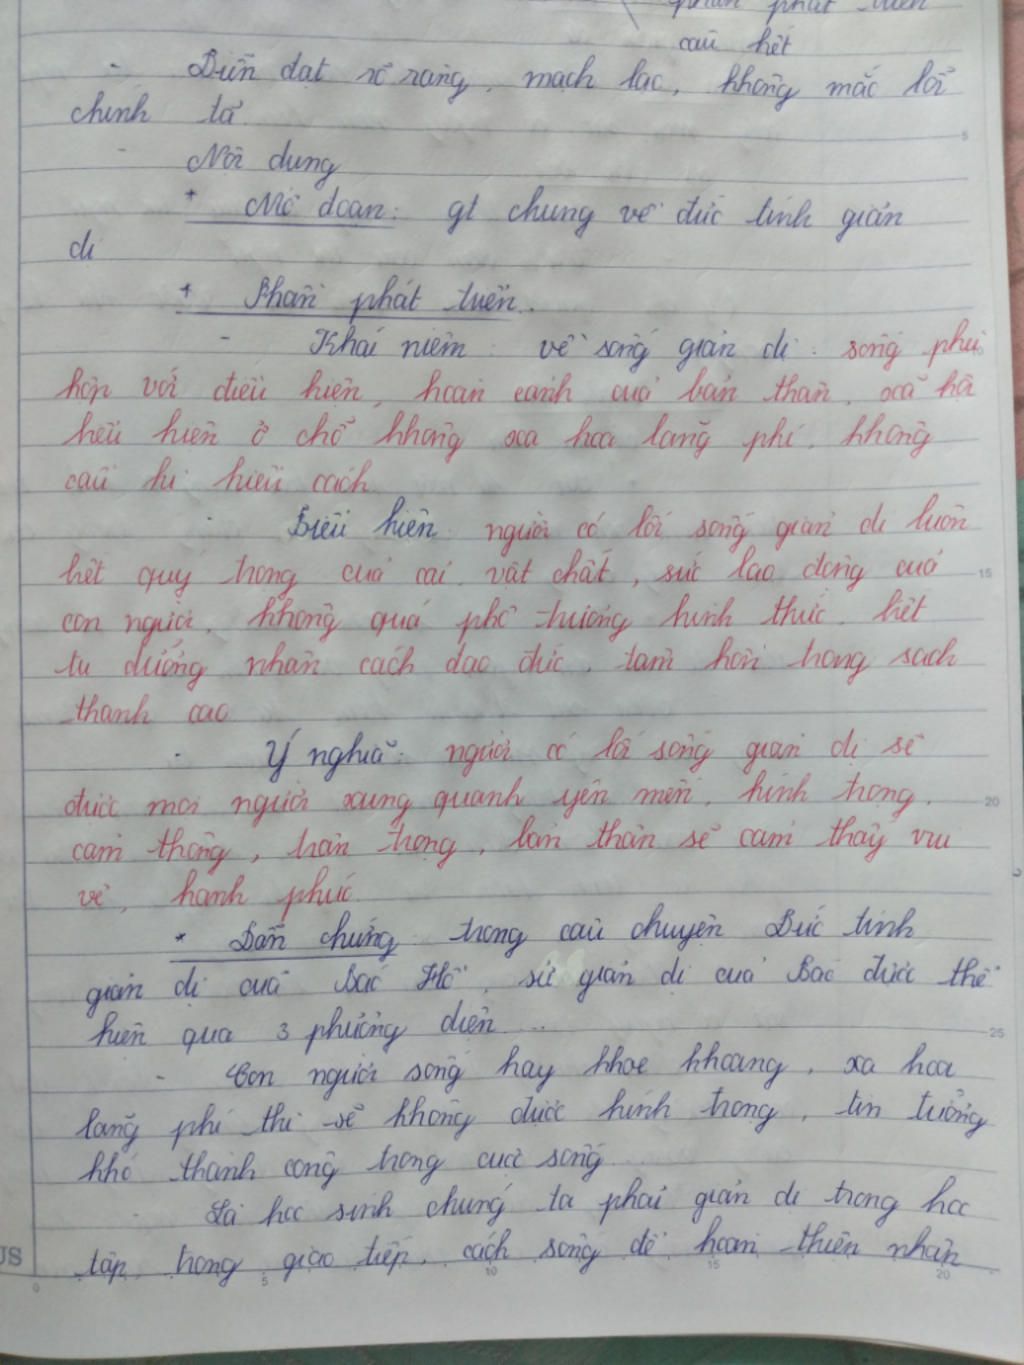 phần phát triển
câu kết
- Diễn đạt rõ ràng, mạch lạc, không mắc lỗi
chính tả
- Nội dung
+ Mở đoạn: gt chung về đức tính giản
dị
+ Phần phát triển.
- Khái niệm: về sống giản dị: sống phù
hợp với điều kiện, hoàn cảnh của bản thân, xã hội
biểu hiện ở chỗ không xa hoa lãng phí, không
cầu kì kiểu cách
- Biểu hiện: người có lối sống giản dị luôn
biết quý trọng của cải vật chất, sức lao động của
con người, không quá phô trương hình thức, biết
tu dưỡng nhân cách đạo đức, tâm hồn trong sạch
thanh cao
- Ý nghĩa: người có lối sống giản dị sẽ
được mọi người xung quanh yên mến, kính trọng,
cảm thông, trân trọng, bản thân sẽ cảm thấy vui
vẻ, hạnh phúc
* Dẫn chứng: trong câu chuyện Đức tính
giản dị của Bác Hồ, sự giản dị của Bác được thể
hiện qua 3 phương diện...
- Con người sống hay khoe khoang, xa hoa
lãng phí thì sẽ không được kính trọng, tin tưởng
khó thành công trong cuộc sống
- Là học sinh chúng ta phải giản dị trong học
tập, trong giao tiếp, cách sống để hoàn thiện nhân
JS
5
10
15
20
25
0
5
10
15
20